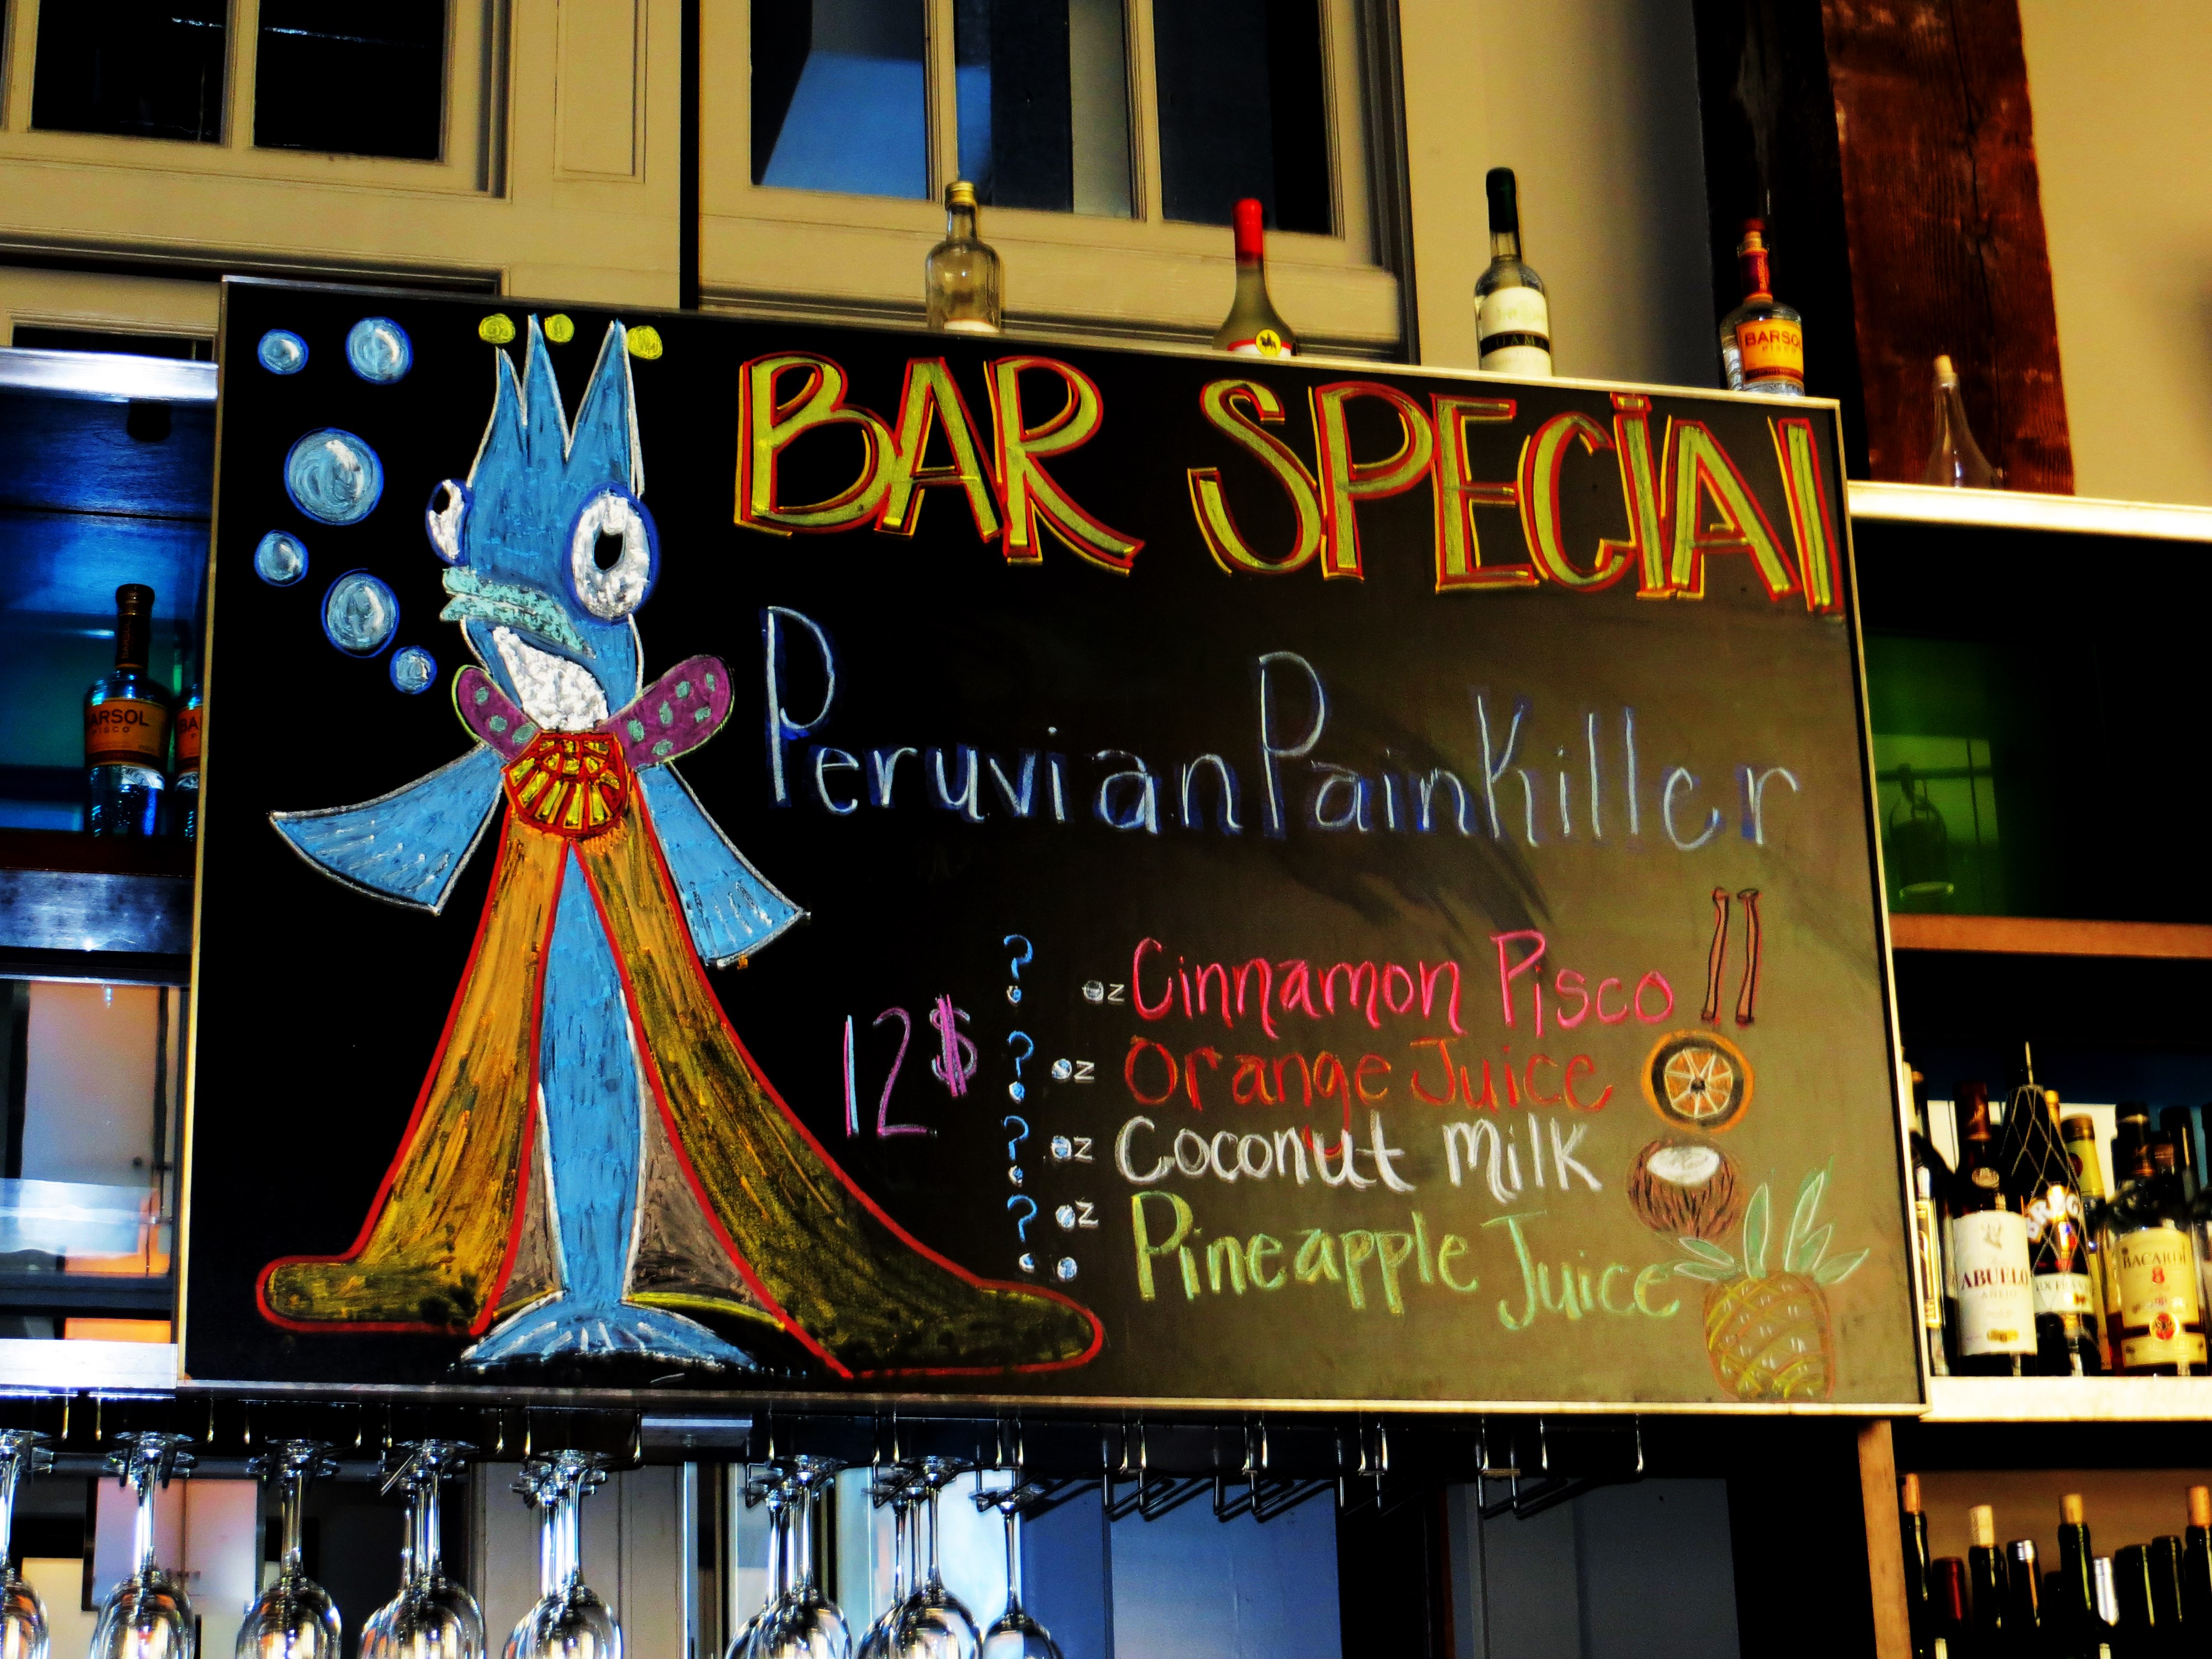 BAR SPECIAl
Peruvian PainKiller
12$
? oz Cinnamon Pisco
? oz Orange Juice
? oz Coconut milk
? oz Pineapple Juice
BARSOL
PISCO
ARSOL
PISCO
BA
ABUELO
AÑEJO
BACARDI
8